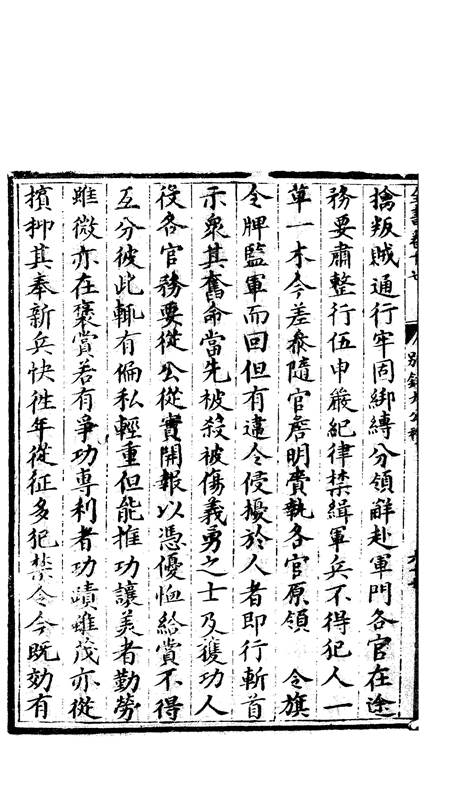 擒叛賊通行牢固綁縛分領辭赴軍門各官在途
務要肅整行伍申嚴紀律禁緝軍兵不得犯人一
草一木今差叅隨官詹明賫執各官原領　令旗
令牌監軍而回但有違令侵擾於人者即行斬首
示衆其奮命當先被殺被傷義勇之士及獲功人
役各官務要從公從實開報以憑優恤給賞不得
互分彼此輒有偏私輕重但能推功讓美者勤勞
雖微亦在褒賞若有爭功專利者功蹟雖茂亦從
擯抑其奉新兵快徃年從征多犯禁令今既効有